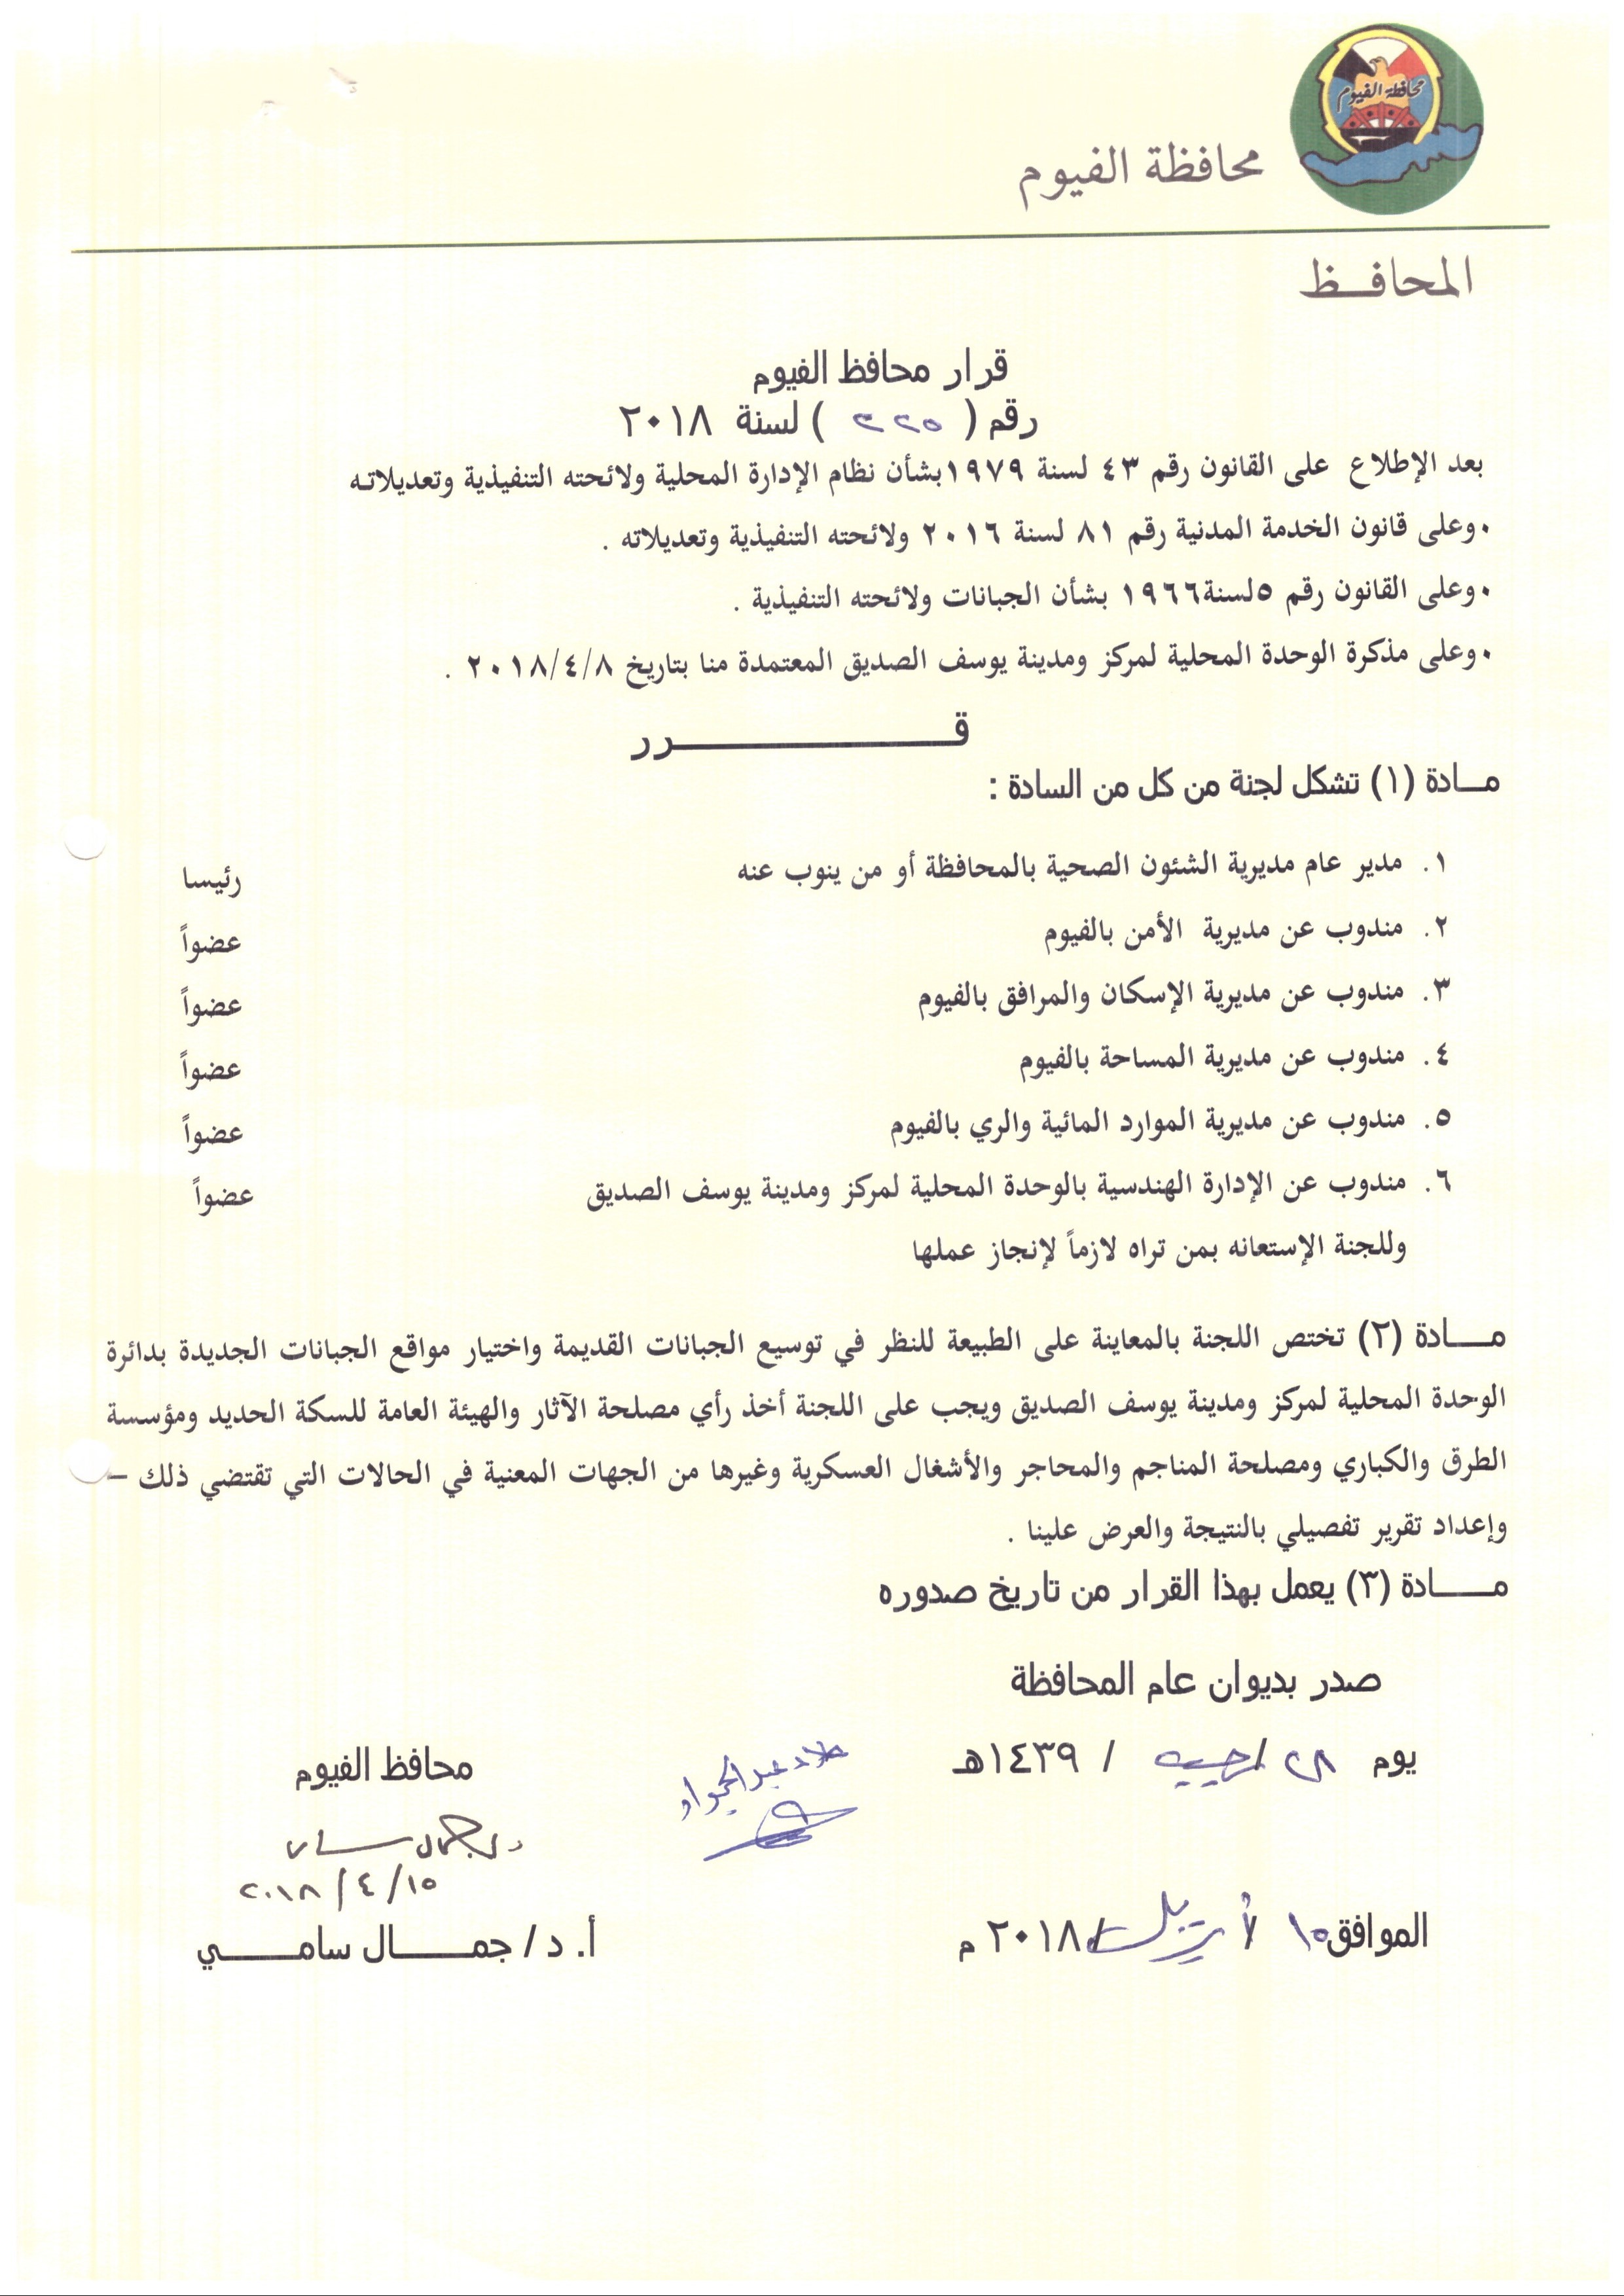 محافظة الفيوم
محافظة الفيوم
المحافـــظ
قرار محافظ الفيوم
رقم ( ٢٢٥ ) لسنة ٢٠١٨
بعد الإطلاع على القانون رقم ٤٣ لسنة ١٩٧٩بشأن نظام الإدارة المحلية ولائحته التنفيذية وتعديلاته
• وعلى قانون الخدمة المدنية رقم ٨١ لسنة ٢٠١٦ ولائحته التنفيذية وتعديلاته .
• وعلى القانون رقم ٥لسنة١٩٦٦ بشأن الجبانات ولائحته التنفيذية .
• وعلى مذكرة الوحدة المحلية لمركز ومدينة يوسف الصديق المعتمدة منا بتاريخ ٢٠١٨/٤/٨ .
قـــــــــــــــرر
مـــادة (١) تشكل لجنة من كل من السادة :
١. مدير عام مديرية الشئون الصحية بالمحافظة أو من ينوب عنه رئيسا
٢. مندوب عن مديرية الأمن بالفيوم عضواً
٣. مندوب عن مديرية الإسكان والمرافق بالفيوم عضواً
٤. مندوب عن مديرية المساحة بالفيوم عضواً
٥. مندوب عن مديرية الموارد المائية والري بالفيوم عضواً
٦. مندوب عن الإدارة الهندسية بالوحدة المحلية لمركز ومدينة يوسف الصديق عضواً
وللجنة الإستعانه بمن تراه لازماً لإنجاز عملها
مـــادة (٢) تختص اللجنة بالمعاينة على الطبيعة للنظر في توسيع الجبانات القديمة واختيار مواقع الجبانات الجديدة بدائرة
الوحدة المحلية لمركز ومدينة يوسف الصديق ويجب على اللجنة أخذ رأي مصلحة الآثار والهيئة العامة للسكة الحديد ومؤسسة
الطرق والكباري ومصلحة المناجم والمحاجر والأشغال العسكرية وغيرها من الجهات المعنية في الحالات التي تقتضي ذلك –
وإعداد تقرير تفصيلي بالنتيجة والعرض علينا .
مـــادة (٣) يعمل بهذا القرار من تاريخ صدوره
صدر بديوان عام المحافظة
يوم ٢٨ / رجب / ١٤٣٩هـ
الموافق ١٥ / أبريل / ٢٠١٨ م
عبد الجواد
محافظ الفيوم
٢٠١٨/٤/١٥
أ. د / جمـــال سامـــي